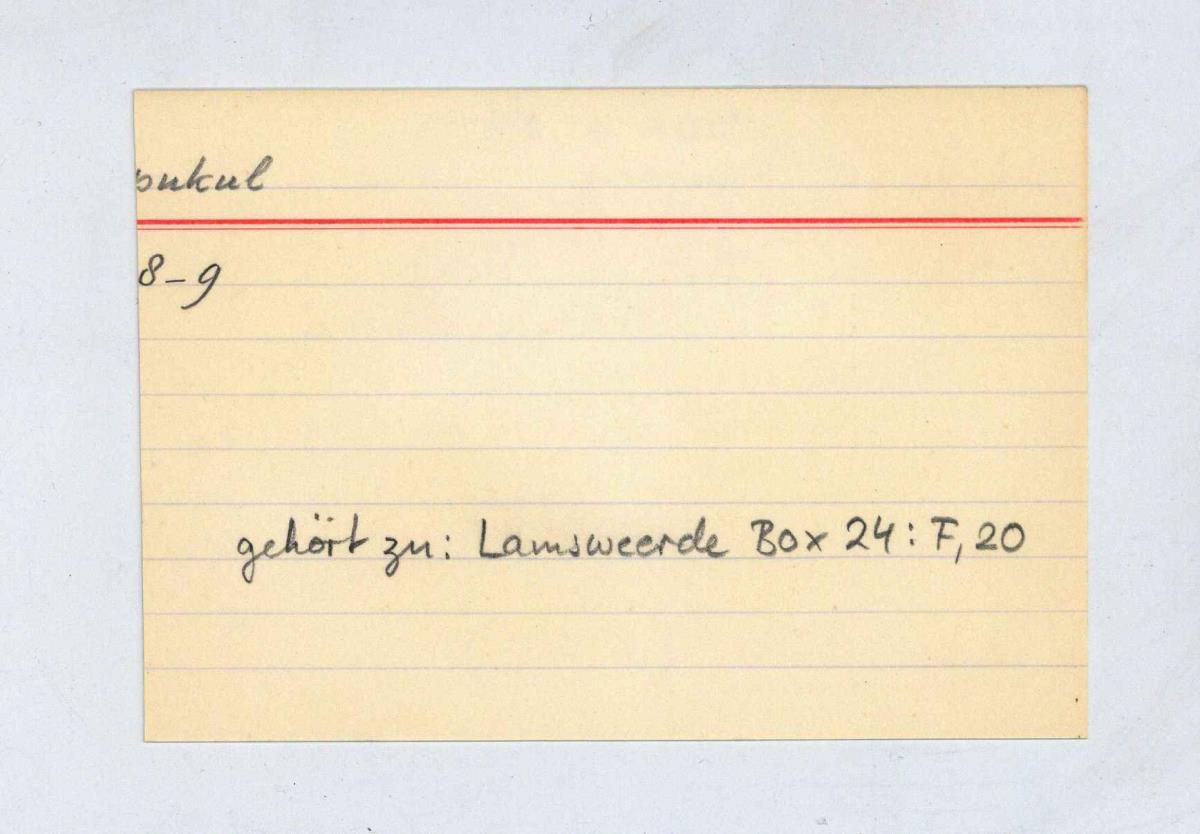 onkul
8-9
gehört zu: Lamsweerde Box 24: F, 20